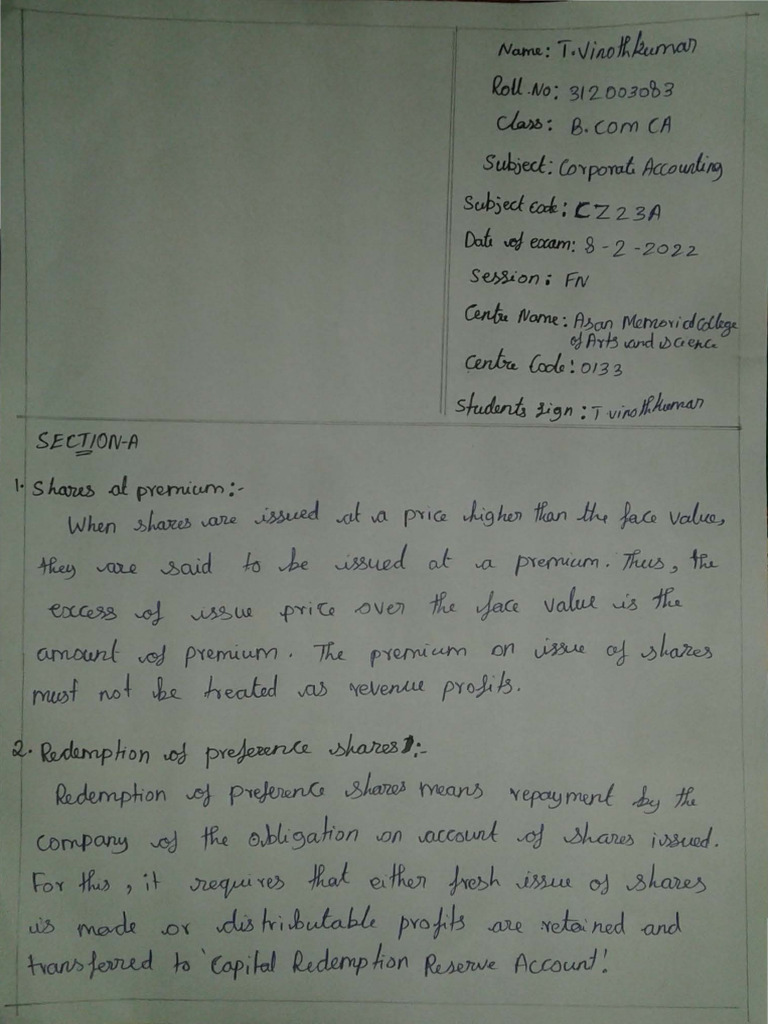 Name: T.Vinothkumar
Roll.No: 312003083
Class: B.com CA
Subject: Corporate Accounting
Subject code: CZ23A
Date of exam: 8-2-2022
Session: FN
Centre Name: Asan Memorial College
of Arts and Science
Centre Code: 0133
Students sign: T vinothkumar
SECTION-A
1. Shares at premium:-
When shares are issued at a price higher than the face value,
they are said to be issued at a premium. Thus, the
excess of issue price over the face value is the
amount of premium. The premium on issue of shares
must not be treated as revenue profits.
2. Redemption of preference shares:-
Redemption of preference shares means repayment by the
company of the obligation on account of shares issued.
For this, it requires that either fresh issue of shares
is made or distributable profits are retained and
transferred to 'Capital Redemption Reserve Account'.